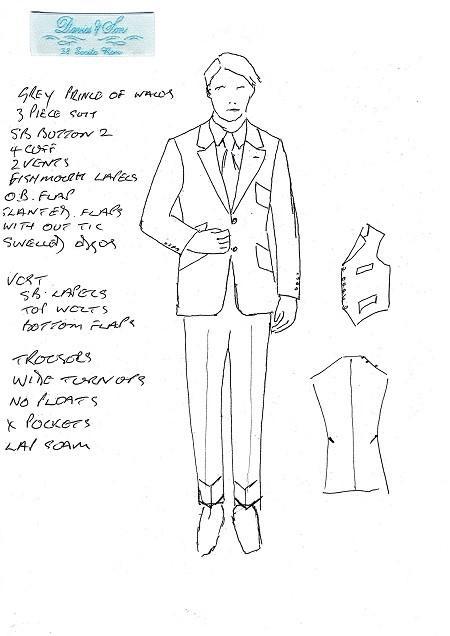 Davies & Son
38 Savile Row
GREY PRINCE OF WALES
3 PIECE SUIT
SB BUTTON 2
4 CUFF
2 VENTS
FISHMOUTH LAPELS
O.B. FLAP
SLANTED FLAPS
WITH OUT TIC
SWELLED EDGES
VEST
SB. LAPELS
TOP WELTS
BOTTOM FLAPS
TROUSERS
WIDE TURNUPS
NO PLEATS
X POCKETS
LAP SEAM